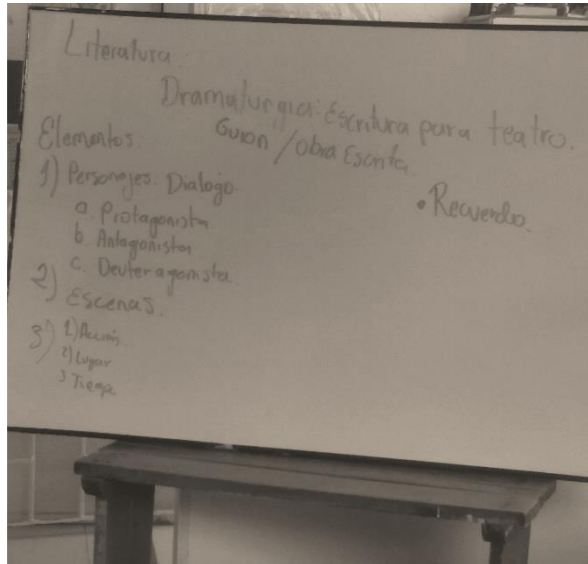 Literatura.
Dramaturgia: Escritura para teatro.
Guion / obra Escrita.
Elementos:
• Recuerdo.
1) Personajes. Dialogo
a. Protagonista
b. Antagonista
c. Deuteragonista.
2) Escenas.
3) 1) Acción.
2) Lugar
3 Tiempo.